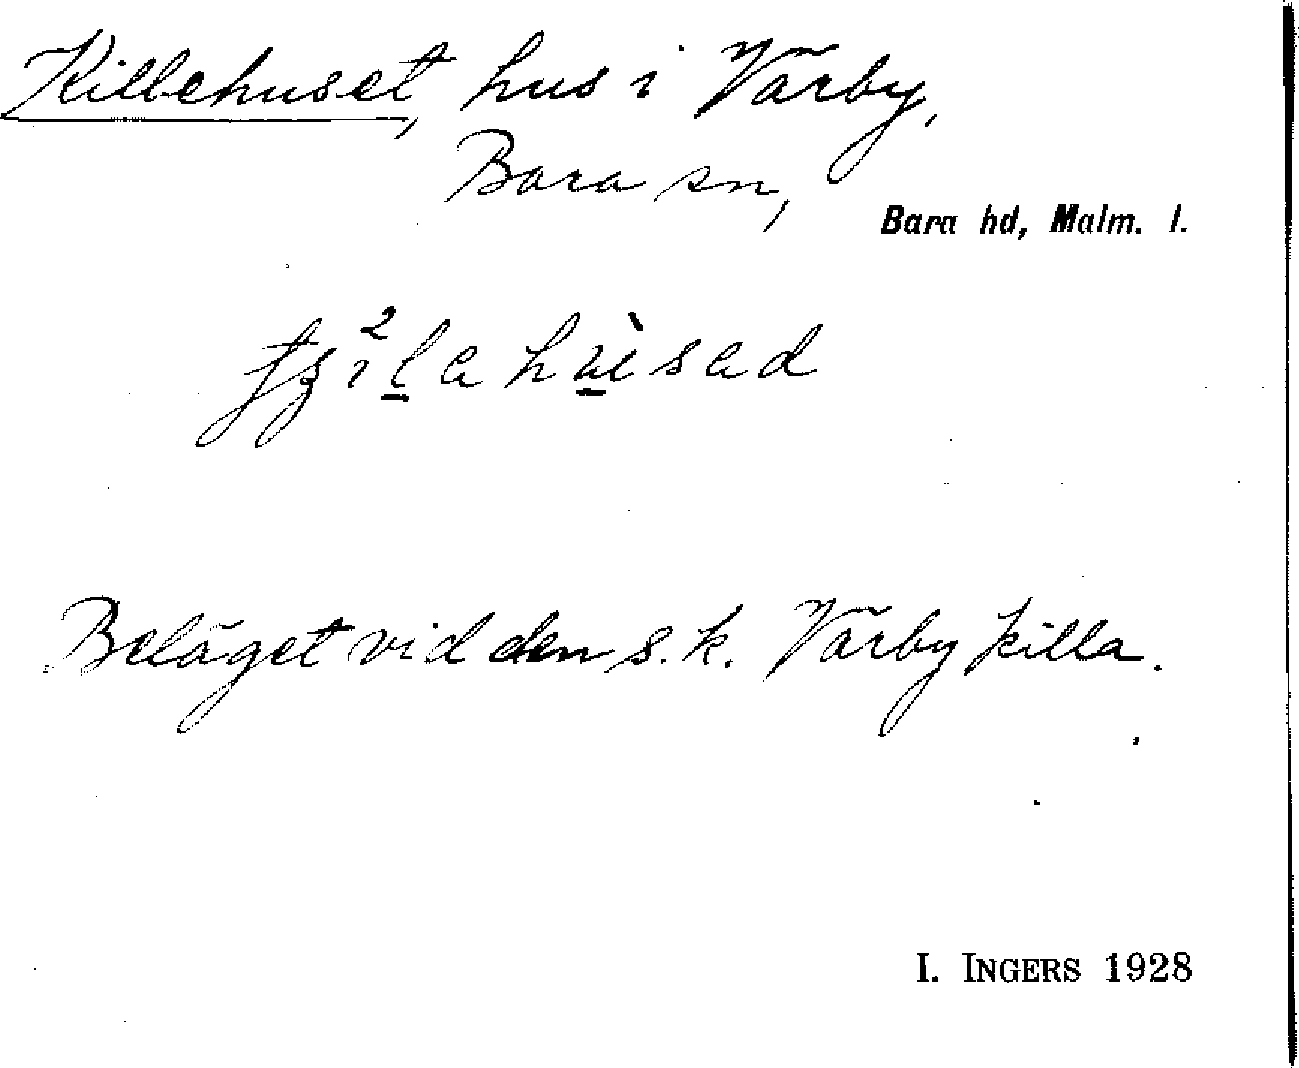 Killehuset, hus i Värby,
Bara sn,
Bara hd, Malm. l.
Beläget vid den s.k. Värby killa.
I. INGERS 1928